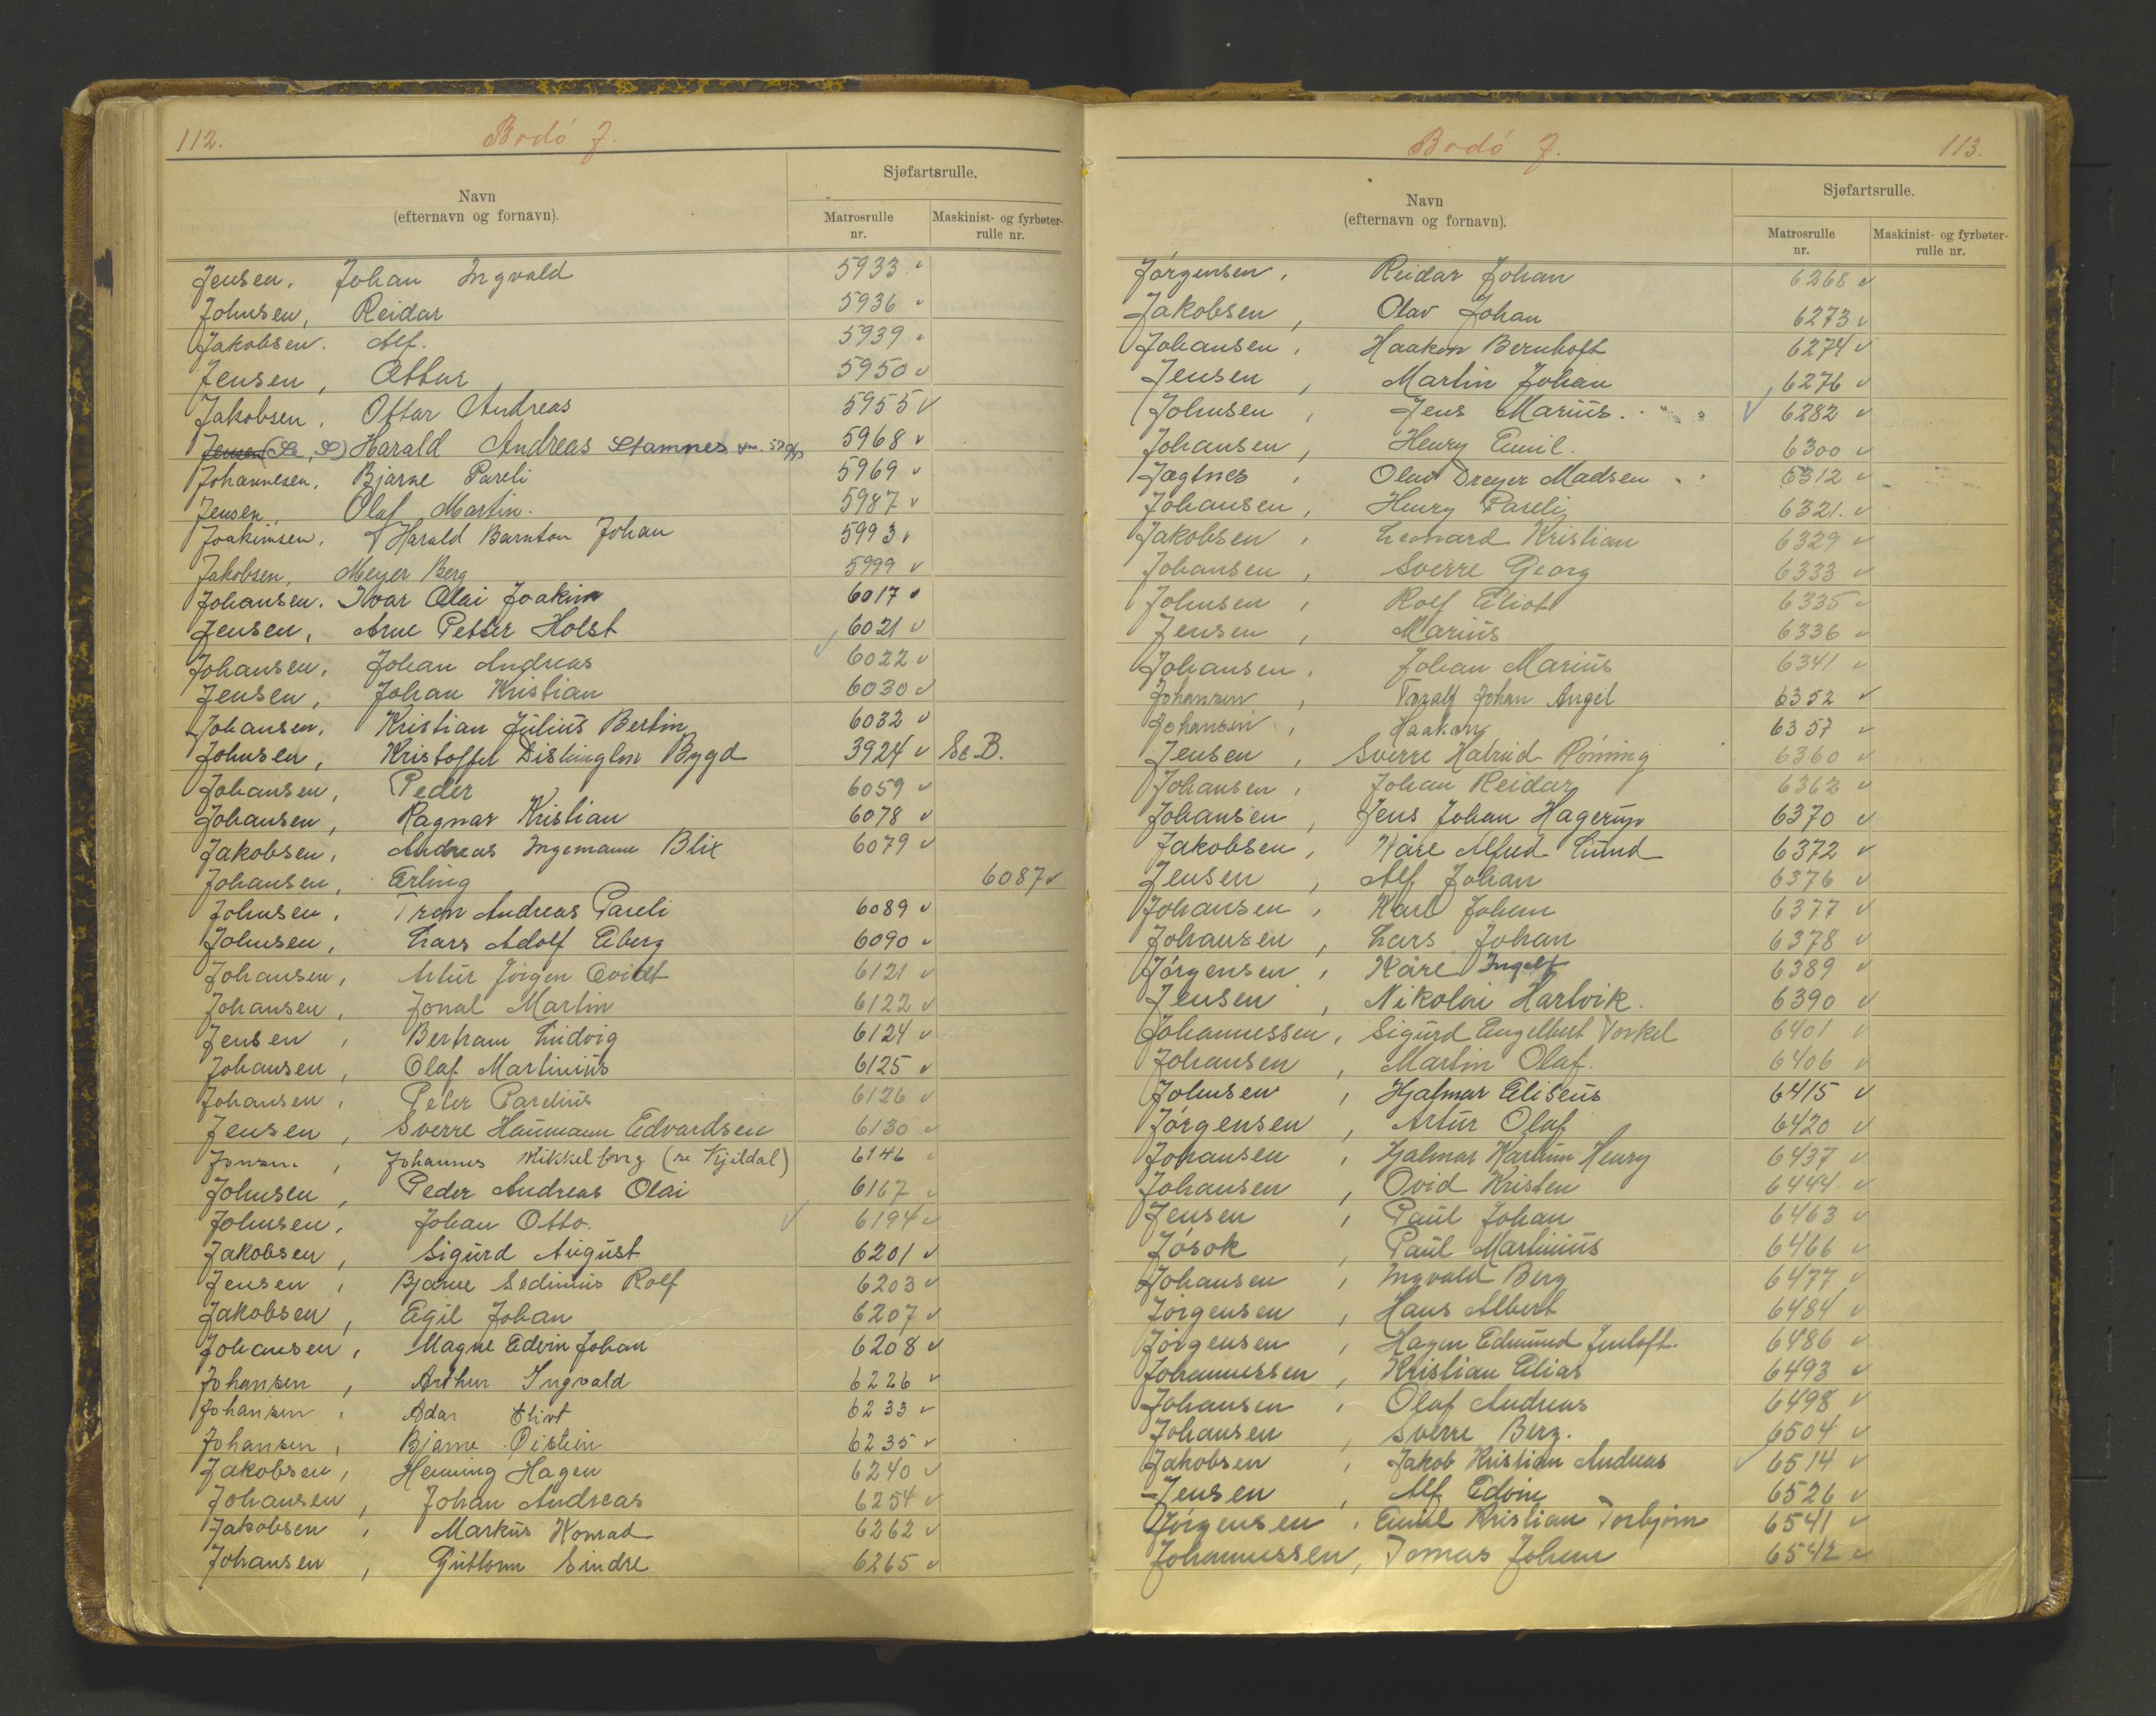 112.
Bodó J.
Navn
(efternavn og fornavn).
Sjøfartsrulle.
Matrosrulle nr.
Maskinist- og fyrbøter-rulle nr.
Jensen, Johan Ingvald 5933 v
Johnsen, Reidar 5936 v
Jakobsen, Alf. 5939 v
Jensen, Ottar 5950 v
Jakobsen, Ottar Andreas 5955 v
Jensen (Se S) Harald Andreas Stamnes 5968 v
Johannesen, Bjarne Pareli 5969 v
Jensen, Olaf Martin. 5987 v
Joakimsen, Harald Barnton Johan 5993 v
Jakobsen, Meyer Berg 5999 v
Johansen, Ivar Olai Joakim 6017 v
Jensen, Arne Petter Holst 6021 v
Johansen, Johan Andreas 6022 v
Jensen, Johan Kristian 6030 v
Johansen, Kristian Julius Bertin 6032 v
Johnsen, Kristoffer Dishington Bygd 3924 v Se B.
Johansen, Peder 6059 v
Johansen, Ragnar Kristian 6078 v
Jakobsen, Andreas Ingemann Blix 6079 v
Johansen, Erling 6087 v
Johnsen, Tron Andreas Pareli 6089 v
Johnsen, Lars Adolf Eberg 6090 v
Johansen, Artur Jörgen 6121 v
Johansen, Jonal Martin 6122 v
Jensen, Bertram Ludvig 6124 v
Johansen, Olaf Martinius 6125 v
Johansen, Peter Parelius 6126 v
Jensen, Sverre Haumann Edvardsen 6130 v
Jonsen, Johannes Mikkelborg (se Kjeldal) 6146 v
Johnsen, Peder Andreas Olai 6167 v
Johnsen, Johan Otto. 6194 v
Jakobsen, Sigurd August 6201 v
Jensen, Bjarne Sedinius Rolf 6203 v
Jakobsen, Egil Johan 6207 v
Johansen, Magne Edvin Johan 6208 v
Johansen, Arthur Ingvald 6226 v
Johansen, Adar Elivt 6233 v
Johansen, Bjarne Øistein 6235 v
Jakobsen, Henning Hagen 6240 v
Johansen, Johan Andreas 6254 v
Jakobsen, Markus Konrad 6262 v
Johansen, Guttorm Sindre 6265 v
Bodó J.
113.
Navn
(efternavn og fornavn).
Sjøfartsrulle.
Matrosrulle nr.
Maskinist- og fyrbøter-rulle nr.
Jörgensen, Reidar Johan 6268 v
Jakobsen, Olav Johan 6273 v
Johansen, Haakon Bernhoft 6274 v
Jensen, Martin Johan 6276 v
Johnsen, Jens Marius. 6282 v
Johansen, Henry Emil. 6300 v
Jægtnes, Olav Dreyer Madsen 6312 v
Johansen, Henry Pareli 6321. v
Jakobsen, Leonard Kristian 6329 v
Johansen, Sverre Georg 6333 v
Johnsen, Rolf Eliot 6335 v
Jensen, Marius 6336 v
Johansen, Johan Marius 6341 v
Johansen, Toralf Johan Angel 6352 v
Johansen, Haakon 6357 v
Jensen, Sverre Halrud Röning 6360 v
Johansen, Johan Reidar 6362 v
Johansen, Jens Johan Hagerup 6370 v
Jakobsen, Kåre Alfred Lund 6372 v
Jensen, Alf Johan 6376 v
Johansen, Karl Johan 6377 v
Johansen, Lars Johan 6378 v
Jörgensen, Kåre Ingolf 6389 v
Jensen, Nikolai Hartvik. 6390 v
Johannessen, Sigurd Engelbert Torkel 6401 v
Johansen, Martin Olaf. 6406 v
Johnsen, Hjalmar Eliseus 6415 v
Jörgensen, Artur Olaf 6420 v
Johansen, Hjalmar Kartum Henry 6437 v
Johansen, Ovid Kristen 6444 v
Jensen, Paul Johan 6463 v
Jösok, Paul Martinius 6466 v
Johansen, Ingvald Berg 6477 v
Jörgensen, Hans Albert 6484 v
Jörgensen, Hagen Edmund Jentoft. 6486 v
Johannessen, Kristian Elias 6493 v
Johansen, Olaf Andreas 6498 v
Johansen, Sverre Berg. 6504 v
Jakobsen, Jakob Kristian Andreas 6514 v
Jensen, Alf Edvin 6526 v
Jörgensen, Emil Kristian Torbjörn 6541 v
Johannessen, Tomas Johan 6542 v